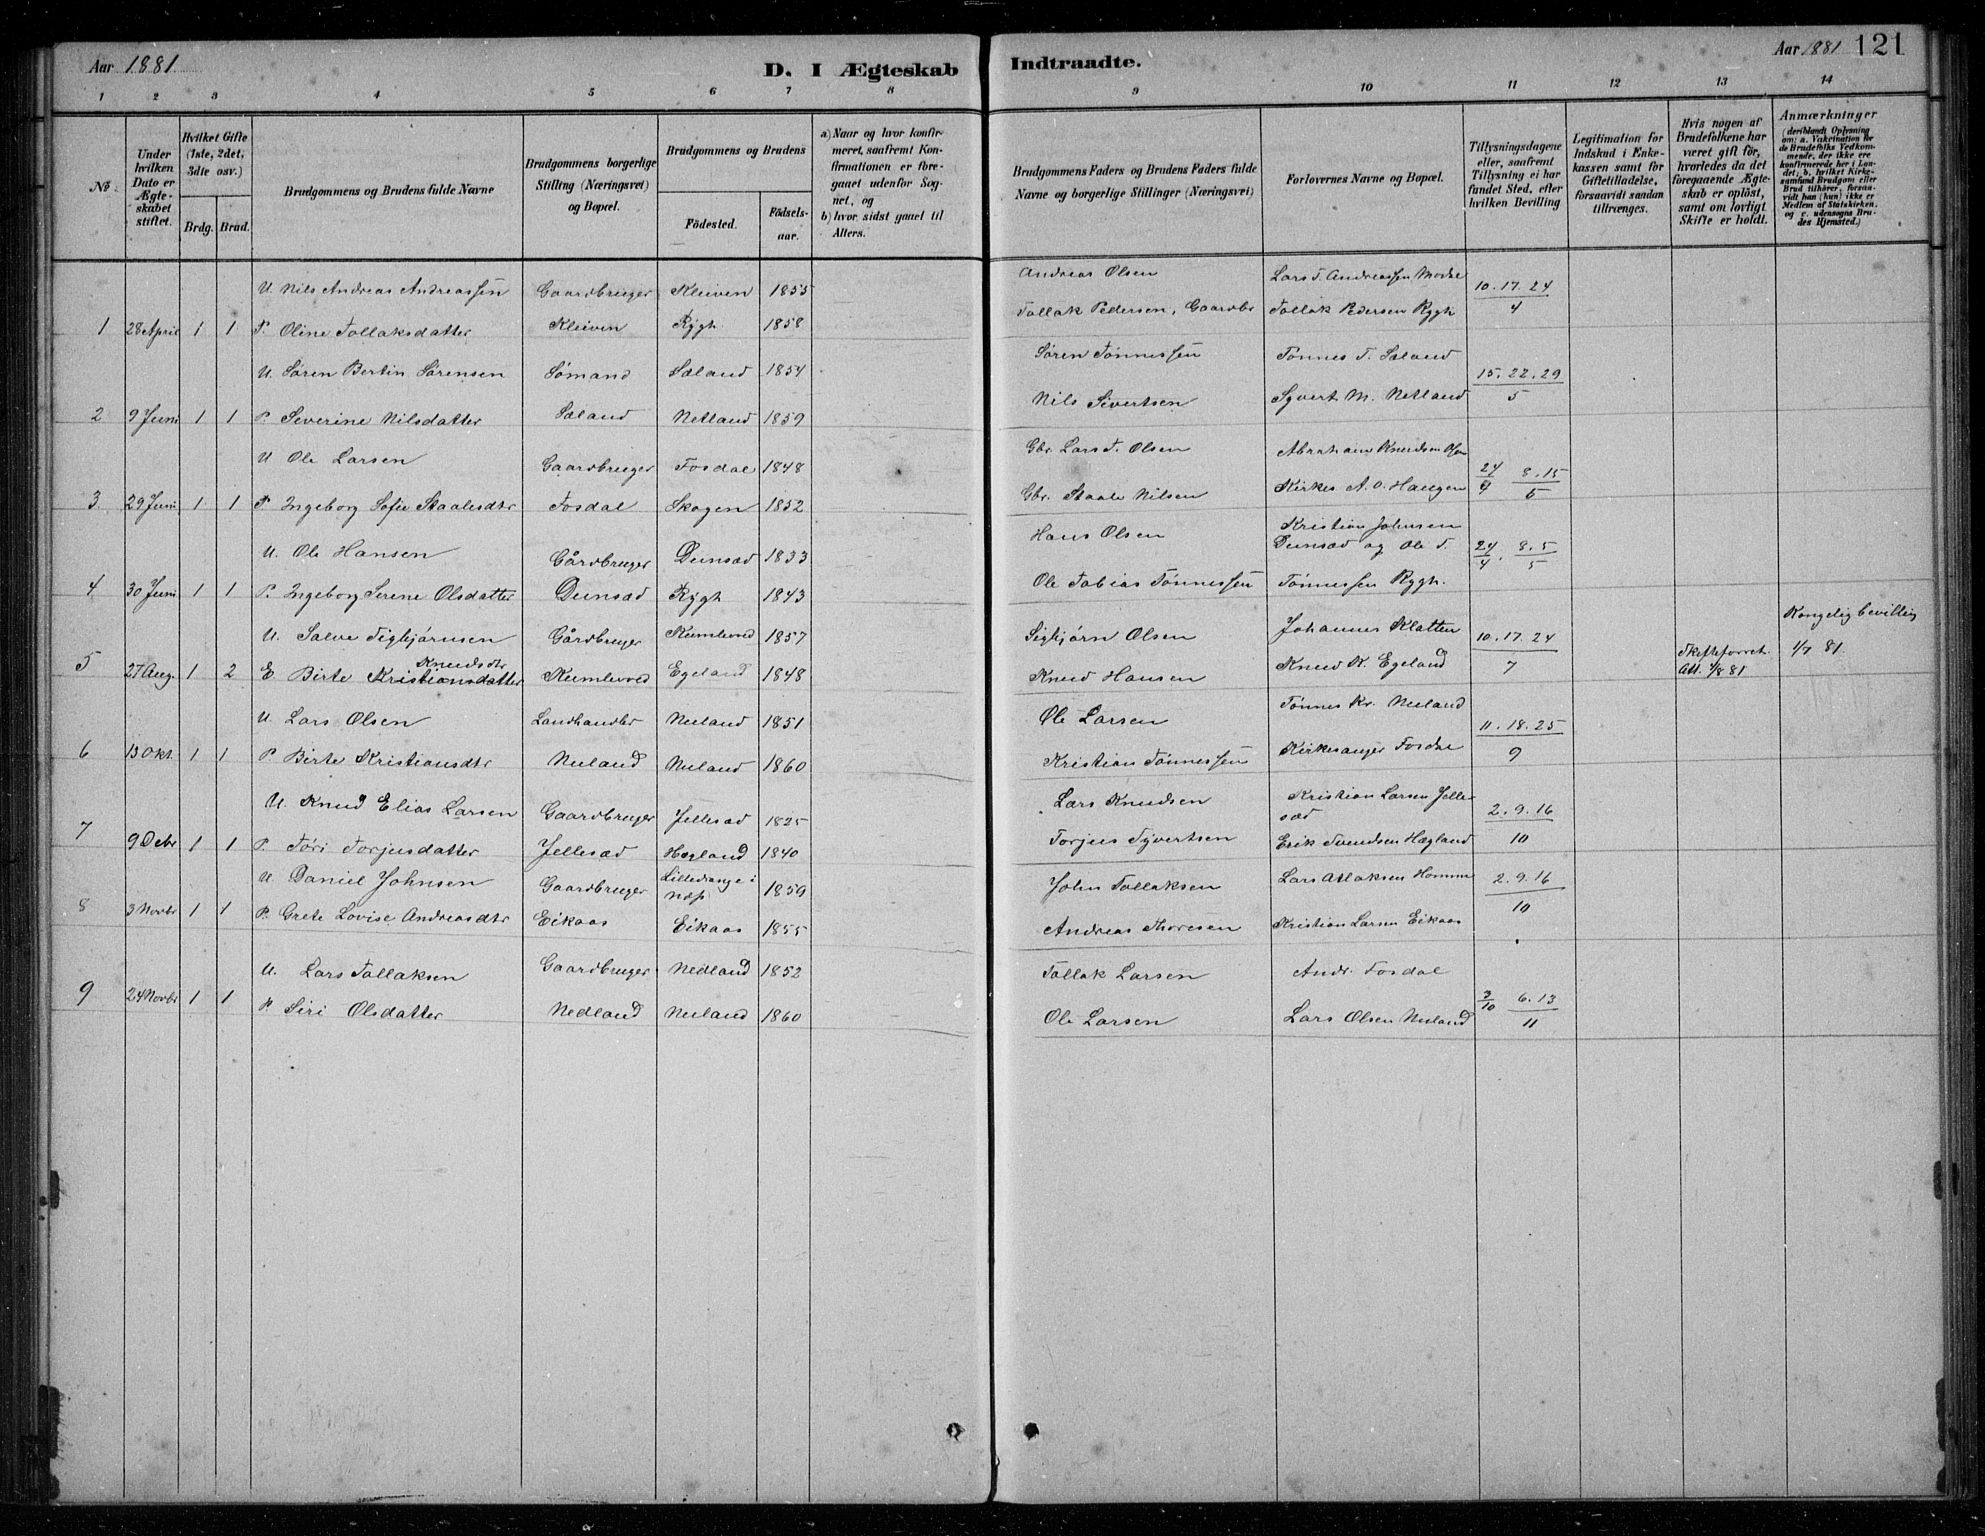 Aar 1881
D. I Ægteskab Indtraadte.
Aar 1881 121
1 2 3 4 5 6 7 8 9 10 11 12 13 14
No.
Under hvilken Dato er Ægteskabet stiftet.
Hvilket Gifte (1ste, 2det, 3die osv.)
Brdg. Brud.
Brudgommens og Brudens fulde Navne
Brudgommens borgerlige Stilling (Næringsvei) og Bopæl.
Brudgommens og Brudens
Födested.
Födselsaar.
a) Naar og hvor konfirmeret, saafremt Konfirmationen er foregaaet udenfor Sognet, og
b) hvor sidst gaaet til Alters.
Brudgommens Faders og Brudens Faders fulde Navne og borgerlige Stillinger (Næringsvei)
Forlovernes Navne og Bopæl.
Tillysningsdagene eller, saafremt Tillysning ei har fundet Sted, efter hvilken Bevilling
Legitimation for Indskud i Enkekassen samt for Giftetilladelse, forsaavidt saadan tiltrænges.
Hvis nogen af Brudefolkene har været gift för, hvorledes da det foregaaende Ægteskab er oplöst, samt om lovligt Skifte er holdt.
Anmærkninger
(deriblandt Oplysning om: a. Vakcination for de Brudefolks Vedkommende, der ikke ere konfirmerede her i Landet, b. hvilket Kirkesamfund Brudgom eller Brud tilhörer, forsaavidt han (hun) ikke er Medlem af Statskirken, og c. udensogns Brudes Hjemsted.)
U. Nils Andreas Andreassen Gaardbruger Kleiven 1855 Andreas Olsen Lars T. Andreassen 10. 17. 24
1 28 April 1 1 P. Oline Tollaksdatter Kleiven Rygh 1858 Tollak Pedersen, Gaardbr Tollak Pedersen Rygh 4
U. Sören Bertin Sörensen Sömand Sæland 1854 Sören Tönnessen Tönnes T. Sæland 15. 22. 29
2 9 Juni 1 1 P. Severine Nilsdatter Sæland Netland 1859 Nils Sivertsen Syvert M. Netland 5
U Ole Larsen Gaardbruger Fosdal 1848 Gbr. Lars T. Olsen Abraham Knudsen 24/4 8. 15
3. 29 Juni 1 1 P Ingeborg Sofie Staalesdtr Fosdal Skogen 1852 Gbr. Staale Nilsen Kirkes A. O. Haugen 5
U. Ole Hansen Gårdbruger Dunsæd 1833 Hans Olsen Kristian Johnsen Dunsæd og Ole T. 24/4. 8. 5
4 30 Juni 1 1 P. Ingeborg Serene Olsdatter Dunsæd Rygh 1843 Ole Tobias Tönnessen Tönnessen Rygh. 5
U. Salve Sigbjörnsen Gårdbruger Kumlevod 1857 Sigbjörn Olsen Johannes Klatten 10. 17. 24 Kongelig bevilling
5 27 Aug. 1 2 E Birte Kristiansdatter Knudsdtr Kumlevod Egeland 1848 Knud Hansen Knud K. Egeland 7 Skifteforret. Att. 1/8 81 1/7 81.
U. Lars Olsen Landhandler Nuland 1851 Ole Larsen Tönnes Kr. Nuland 11. 18. 25
6 13 Okt. 1 1 P Birte Kristiansdtr Nuland Nuland 1860 Kristian Tönnessen Kirkesanger Fosdal 9
U. Knud Elias Larsen Gaardbruger Jellesæd 1825 Lars Knudsen Kristian Larsen Jellesæd 2. 9. 16
7 9 Debr 1 1 P. Töri Torjusdatter Jellesæd Hægland 1840 Torjus Syvertsen Erik Svendsen Hægland 10
U. Daniel Johnsen Gaardbruger Lilledrange i 1859 John Tollaksen Lars Atlaksen Homme 2. 9. 16
8 3 Novbr 1 1 P. Grete Lovise Andreasdtr Eikaas Eikaas 1855 Andreas Thoresen Kristian Larsen Eikaas 10
U. Lars Tollaksen Gaardbruger Nedland 1852 Tollak Larsen Andr. Fosdal
9 24 Novbr 1 1 P. Siri Olsdatter Nedland Nuland 1860 Ole Larsen Lars Olsen Nuland 3/10 6. 13 11